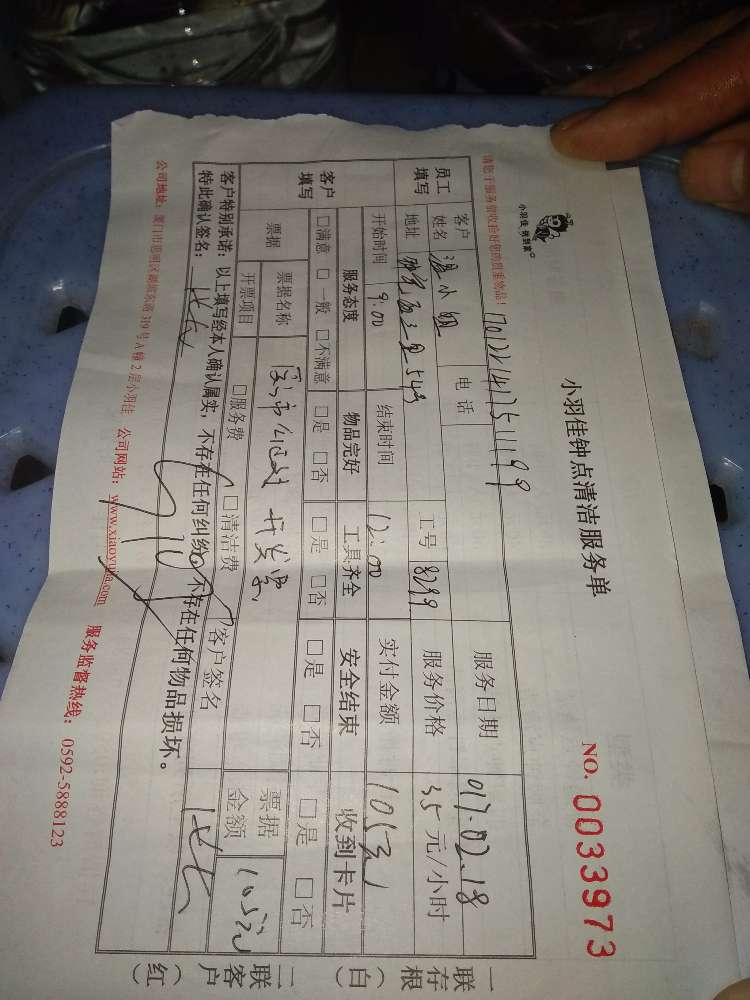 小羽佳 做到家
小羽佳钟点清洁服务单
NO. 0033973
请您于服务前收拾好您的贵重物品!
员工填写
客户姓名
小姐
电话
工号 8299
服务日期 017.02.18
地址
服务价格 35 元/小时
开始时间 9:00
结束时间 12:00
实付金额 105元
客户填写
服务态度 物品完好 工具齐全 安全结束 收到卡片
□满意 □一般 □不满意 □是 □否 □是 □否 □是 □否 □是 □否
票据
票据名称
开发票
票据金额 105元
开票项目 □服务费 □清洁费
客户签名
客户特别承诺:以上填写经本人确认属实,不存在任何纠纷,不存在任何物品损坏。
特此确认签名:
公司地址:厦门市思明区湖滨东路319号A幢2层小羽佳 公司网站:www.xiaoyujia.com 服务监督热线:0592-5888123
一联存根(白)
二联客户(红)